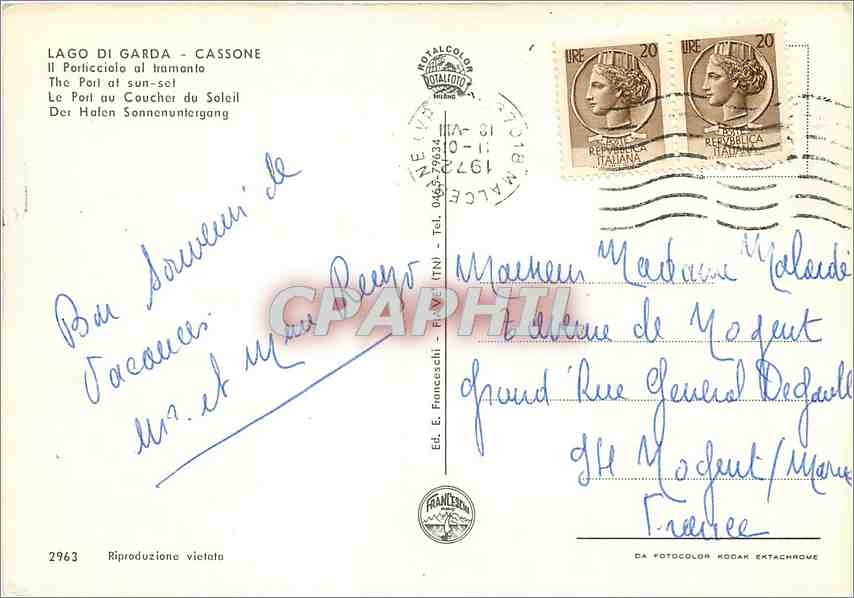 LAGO DI GARDA - CASSONE
Il Porticciolo al tramonto
The Port at sun-set
Le Port au Coucher du Soleil
Der Hafen Sonnenuntergang
ROTALCOLOR
ROTALFOTO
MILANO
LIRE 20
POSTE
REPVBBLICA
ITALIANA
LIRE 20
POSTE
REPVBBLICA
ITALIANA
37018 MALCE
1972
Bon Souvenir de
Vacances.
Mr. et Mme Renzo
CPAPHIL
Ed. E. Franceschi - FIAVE' (TN) - Tel. 0465-79634
Monsieur Madame Malardé
Taverne de Nogent
Grand Rue General Degaull
94 Nogent/Marne
France
FRANCESCHI
2963 Riproduzione vietata
DA FOTOCOLOR KODAK EKTACHROME